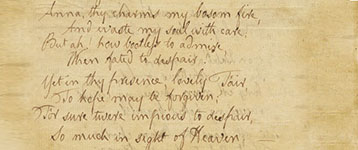 Anna, thy charms my bosom fire,
And waste my soul with care;
But ah! how bootless to admire,
When fated to despair!
Yet in thy presence, lovely Fair,
To hope may be forgiven;
For sure 'twere impious to despair,
So much in sight of Heaven.